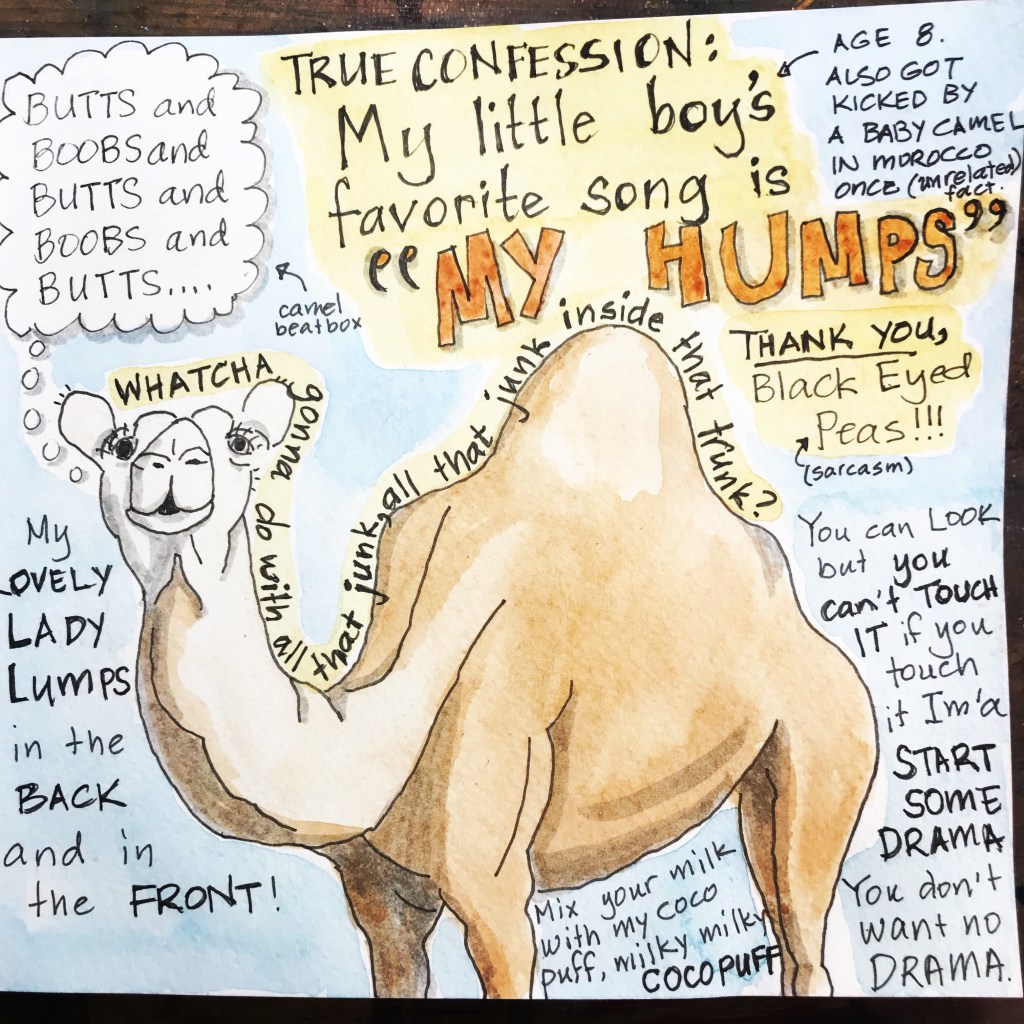 TRUE CONFESSION:
My little boy's
favorite song is
"MY HUMPS"
AGE 8.
ALSO GOT
KICKED BY
A BABY CAMEL
IN MOROCCO
ONCE (unrelated)
fact.
BUTTS and
BOOBS and
BUTTS and
BOOBS and
BUTTS....
camel
beatbox
THANK YOU,
Black Eyed
Peas!!!
(sarcasm)
WHATCHA gonna do with all that junk, all that junk inside that trunk?
My
LOVELY
LADY
LUMPS
in the
BACK
and in
the FRONT!
You can LOOK
but you
can't TOUCH
IT if you
touch
it Im'a
START
SOME
DRAMA
You don't
want no
DRAMA.
Mix your milk
with my coco
puff, milky milky
COCOPUFF